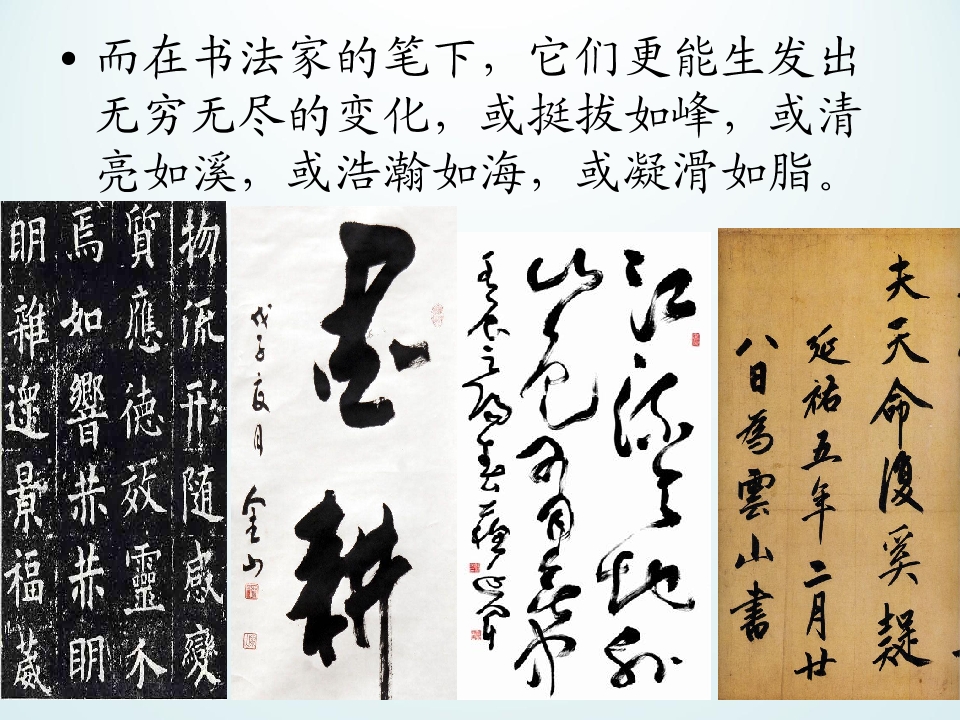 • 而在书法家的笔下，它们更能生发出
无穷无尽的变化，或挺拔如峰，或清
亮如溪，或浩瀚如海，或凝滑如脂。
物流形随感變
質應德效靈不
焉如響赫赫明
明雜遝景福葳
墨耕
戊子夏月
金山
江流天地外
山色有无中
夫天命復奚疑
延祐五年二月廿
八日為雲山書